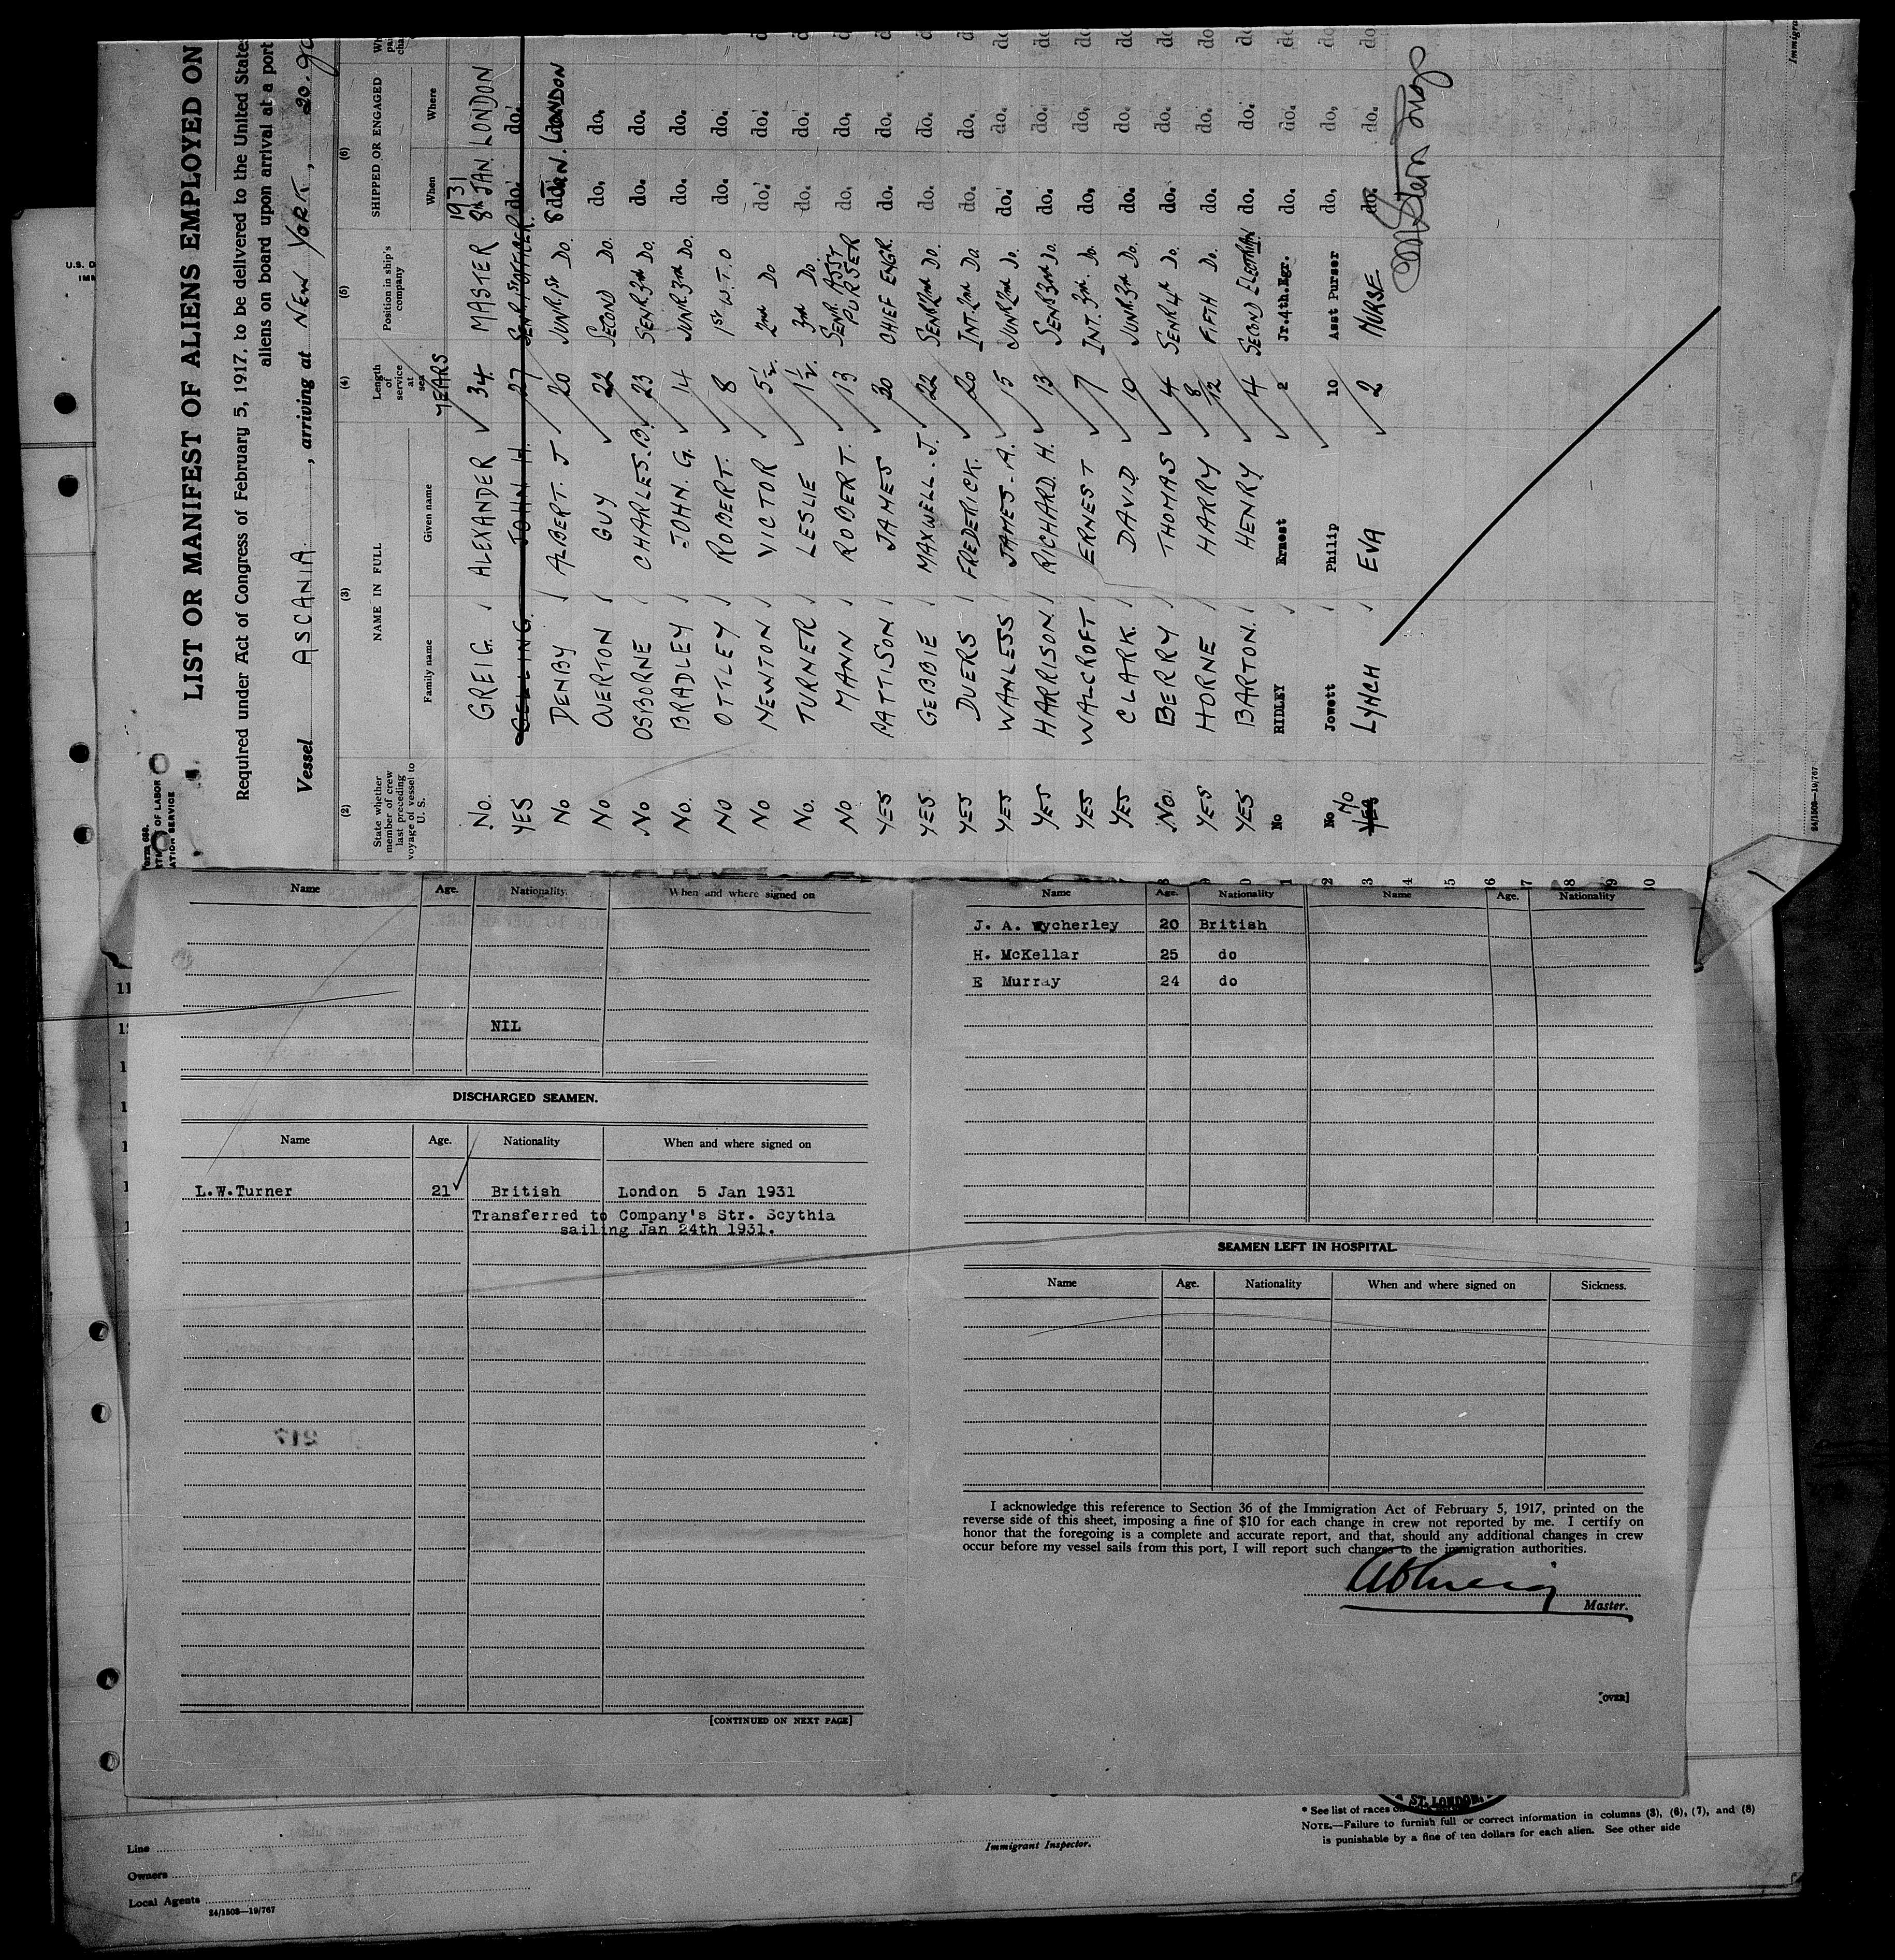 LIST OR MANIFEST OF ALIENS EMPLOYED ON
Required under Act of Congress of February 5, 1917, to be delivered to the United States
aliens on board upon arrival at a port
Vessel ASCANIA, arriving at NEW YORK, 20.
(2) (3) (4) (5) (6)
State whether member of crew last preceding voyage of vessel to U. S.
NAME IN FULL
Family name Given name
Length of service at sea
YEARS
Position in ship's company
SHIPPED OR ENGAGED
When Where
1931
No. GREIG. ALEXANDER 34 MASTER 8th JAN. LONDON
YES GELLING. JOHN H. 27 SENR 1st OFFICER do. do.
No DENBY ALBERT. J 20 JUNR 1st DO. 8 JAN. LONDON
No OVERTON GUY 22 SECOND DO. do. do.
No OSBORNE CHARLES. B. 23 SENR 3rd DO. do. do.
No. BRADLEY JOHN. G. 14 JUNR 3rd DO. do. do.
No OTTLEY ROBERT. 8 1st W.T.O do. do.
No NEWTON VICTOR 5½ 2nd Do do. do. do
No. TURNER LESLIE 1½ 3rd Do. do. do. do
No MANN ROBERT. 13 SENR ASST PURSER do. do. do
YES PATTISON JAMES 30 CHIEF ENGR. do. do. do
YES. GEBBIE MAXWELL. J. 22 SENR 2nd DO. do. do. do
YES DUERS FREDERICK. 20 INT. 2nd DO do. do. do
YES WANLESS JAMES. A. 15 JUNR 2nd DO. do. do. do
YES HARRISON. RICHARD. H. 13 SENR 3rd DO. do. do. do
YES WALCROFT ERNEST 7 INT. 3rd. DO. do. do. do
YES CLARK. DAVID 10 JUNR 3rd DO. do. do. do
No. BERRY THOMAS 4 SENR 4th DO. do. do. do
YES HORNE HARRY 8/12 FIFTH DO. do. do. do
YES BARTON. HENRY 4 SECOND ELECTRIAN do. do. do
No RIDLEY Ernest 2 Jr.4th.Egr. do. do. do
No Jowett Philip 10 Asst Purser do. do. do
YES No LYNCH EVA 2 NURSE do. do. do
24/1508—19/767
Name Age. Nationality. When and where signed on
NIL
DISCHARGED SEAMEN.
Name Age. Nationality When and where signed on
L.W.Turner 21 British London 5 Jan 1931
Transferred to Company's Str. Scythia
sailing Jan 24th 1931.
217
[CONTINUED ON NEXT PAGE]
Name Age. Nationality Name Age. Nationality
J. A. Wycherley 20 British
H. McKellar 25 do
E Murray 24 do
SEAMEN LEFT IN HOSPITAL.
Name Age. Nationality When and where signed on Sickness.
I acknowledge this reference to Section 36 of the Immigration Act of February 5, 1917, printed on the
reverse side of this sheet, imposing a fine of $10 for each change in crew not reported by me. I certify on
honor that the foregoing is a complete and accurate report, and that, should any additional changes in crew
occur before my vessel sails from this port, I will report such changes to the immigration authorities.
Master.
[OVER]
ST. LONDON.
* See list of races on
NOTE.—Failure to furnish full or correct information in columns (3), (6), (7), and (8)
is punishable by a fine of ten dollars for each alien. See other side
Immigrant Inspector.
Line
Owners
Local Agents
24/1508—19/767